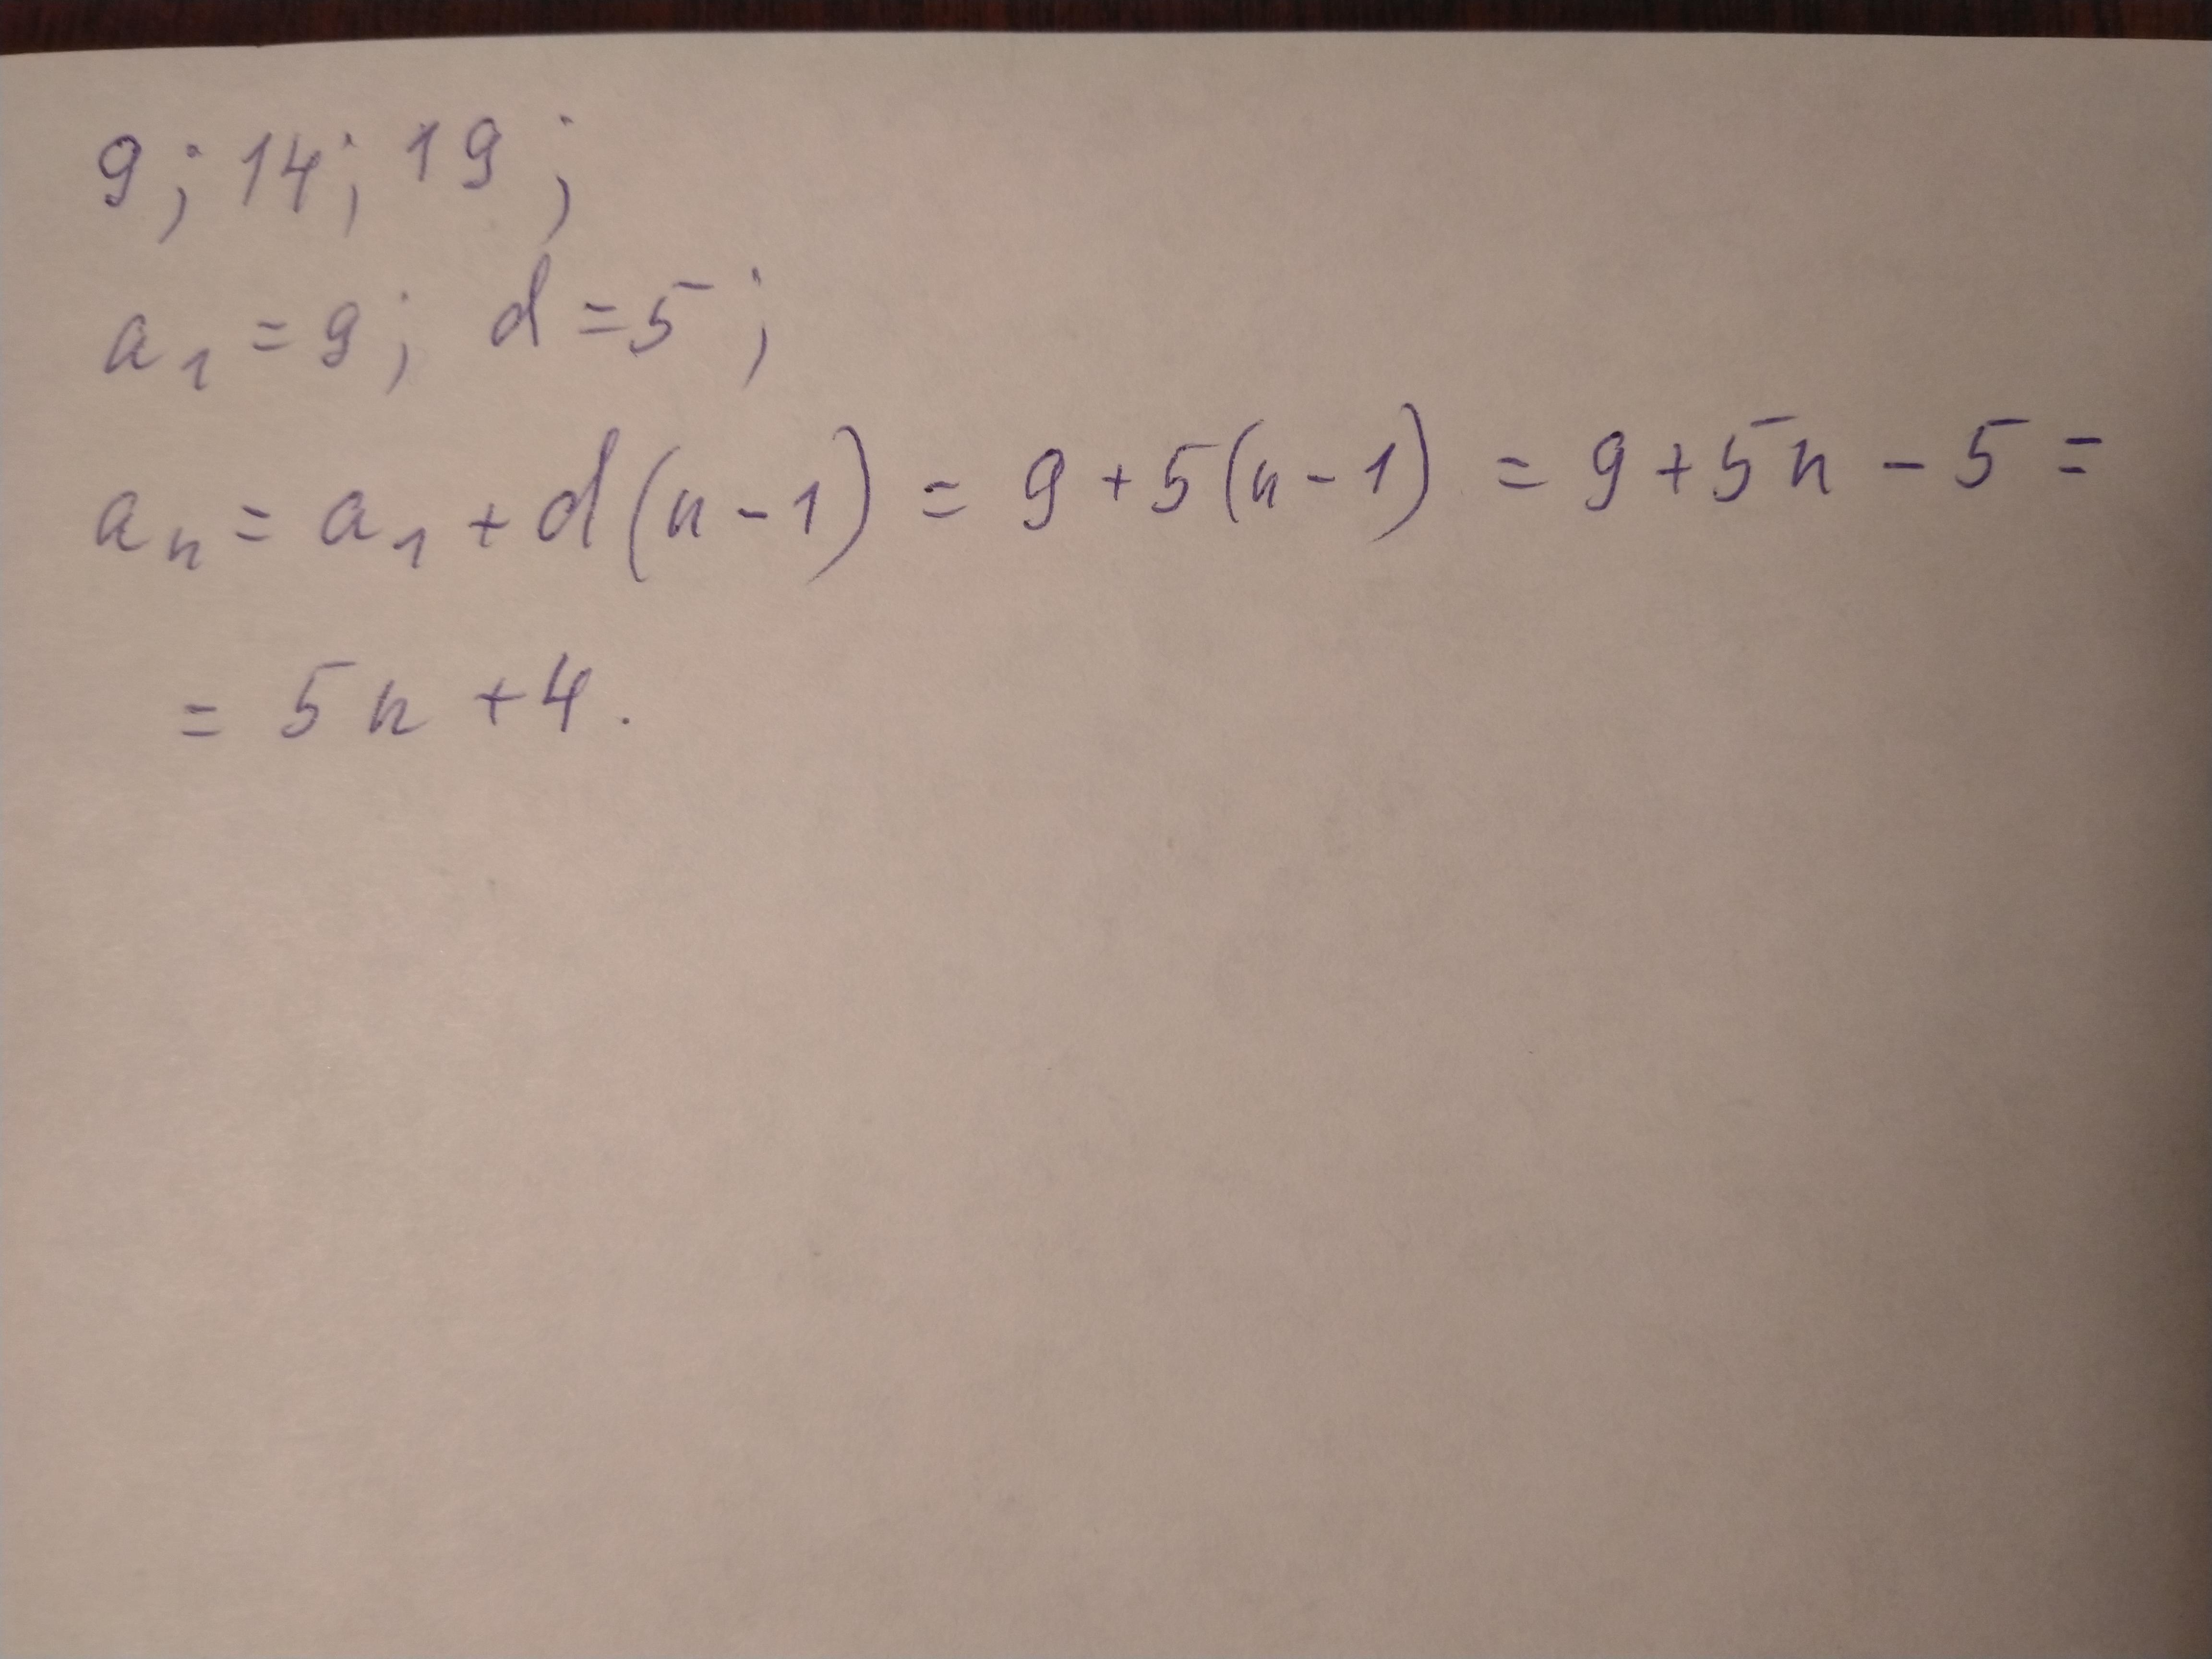 9; 14; 19;
a₁ = 9; d = 5;
aₙ = a₁ + d(n - 1) = 9 + 5(n - 1) = 9 + 5n - 5 =
= 5n + 4.